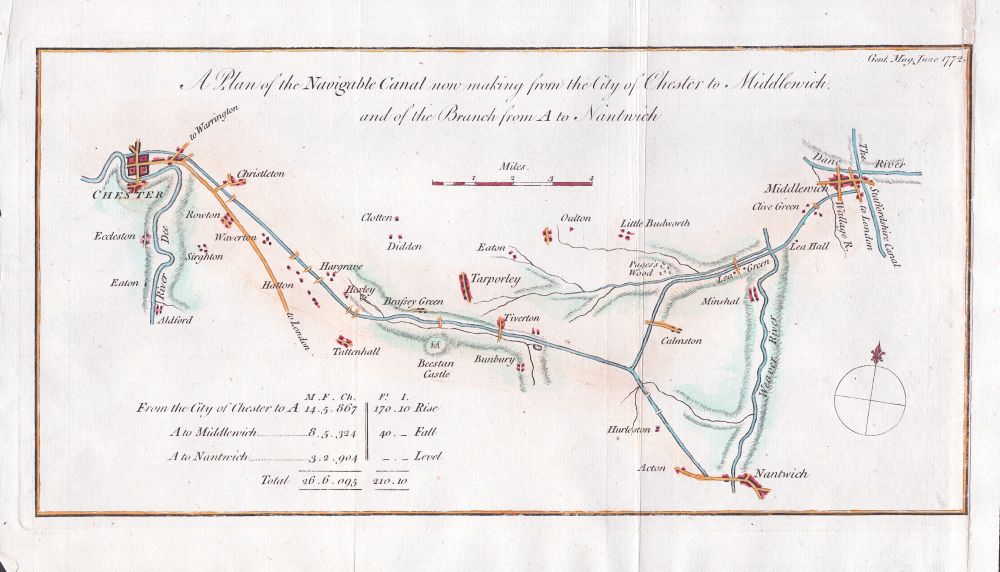 Gent. Mag. June 1772.
A Plan of the Navigable Canal now making from the City of Chester to Middlewich,
and of the Branch from A to Nantwich
to Warrington
CHESTER
Christleton
Rowton
Waverton
Eccleston
River Dee
Sirghton
Eaton
Aldford
Hatton
Hargrave
Hoxley
to London
Tattenhall
Clotton
Didden
Brassey Green
Beestan
Castle
Tarporley
Tiverton
Bunbury
Miles.
1 2 3 4
Eaton
Oulton
Little Budworth
Pages's
Wood
Lea Green
Lea Hall
Clive Green
Middlewich
Dane River
The Staffordshire Canal
Wallage R.
to London
Minshal
Calmston
Weaver River
Hurleston
Acton
Nantwich
M. F. Ch. Ft. I.
From the City of Chester to A 14. 5. 867 170. 10 Rise
A to Middlewich 8. 5. 324 40. _ Fall
A to Nantwich 3. 2. 904 _ . _ Level
Total 26. 6. 095 210. 10